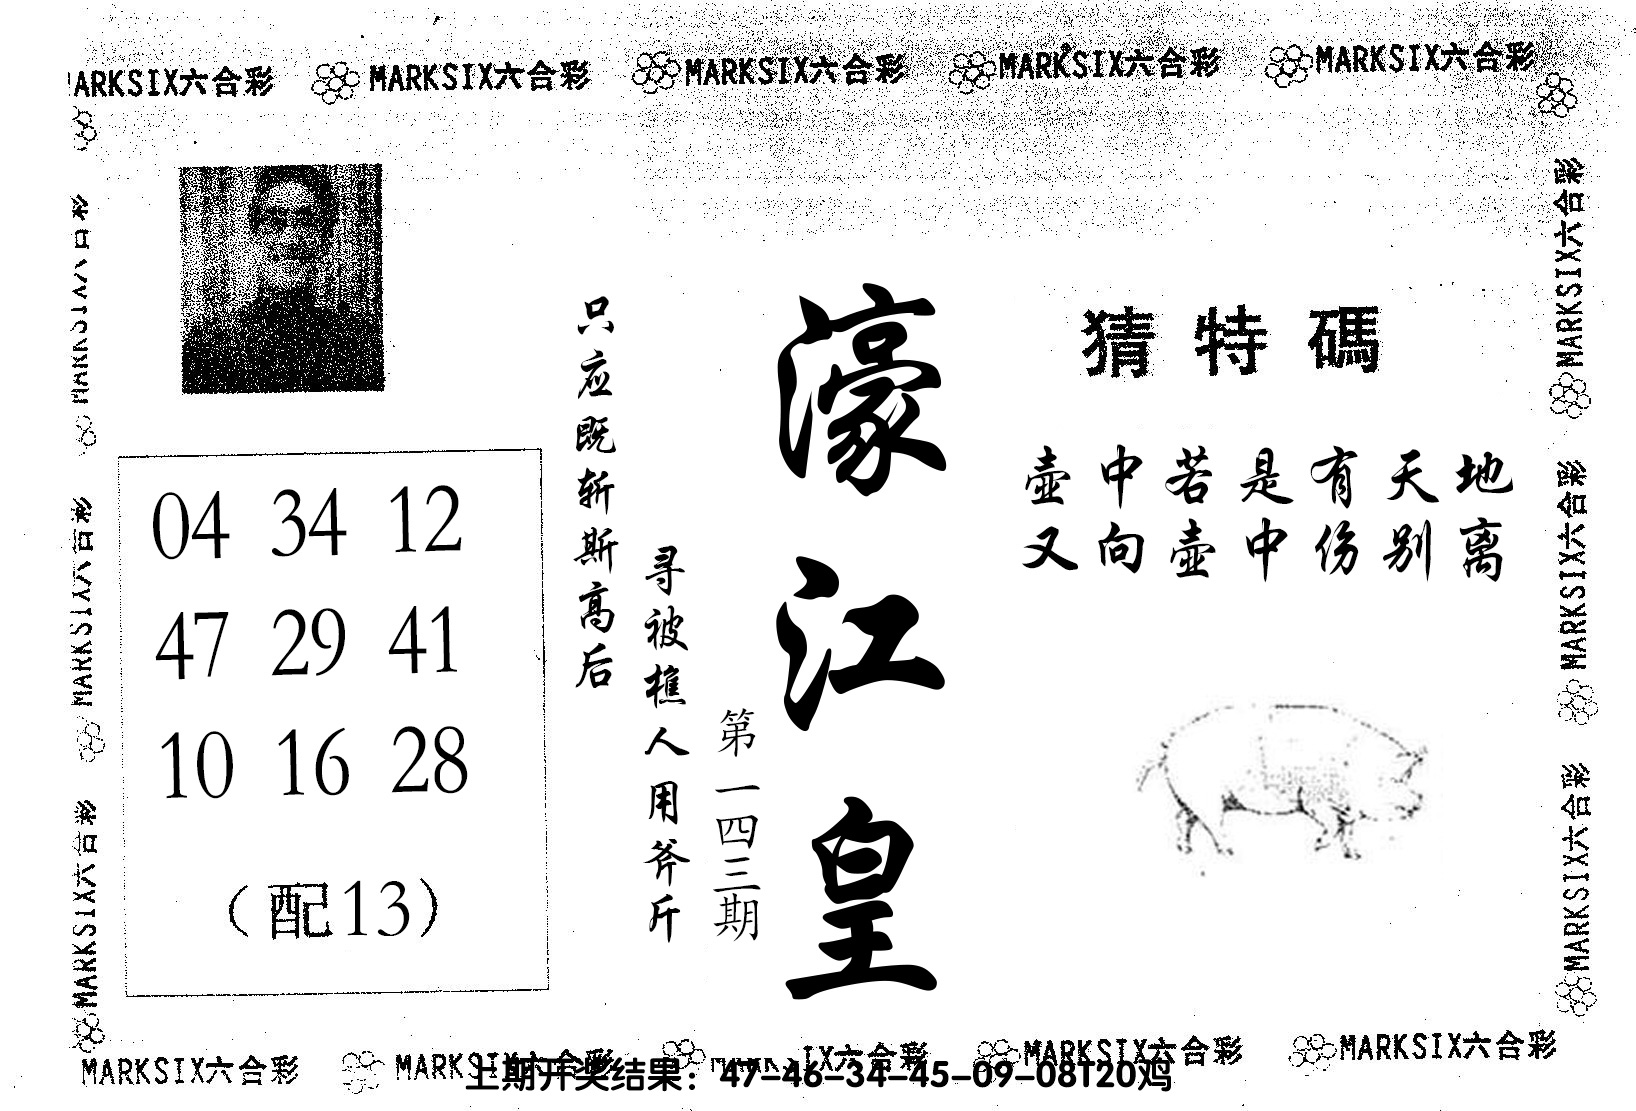 MARKSIX六合彩 MARKSIX六合彩 MARKSIX六合彩 MARKSIX六合彩 MARKSIX六合彩
MARKSIX六合彩
MARKSIX六合彩
MARKSIX六合彩
04 34 12
47 29 41
10 16 28
（配13）
只应既斩斯高后
寻被樵人用斧斤
第一四三期
濠江皇
猜特碼
壶中若是有天地
又向壶中伤别离
MARKSIX六合彩
MARKSIX六合彩
MARKSIX六合彩
MARKSIX六合彩 MARKSIX六合彩 IX六合彩 MARKSIX六合彩 MARKSIX六合彩
上期开奖结果：47-46-34-45-09-08T20鸡